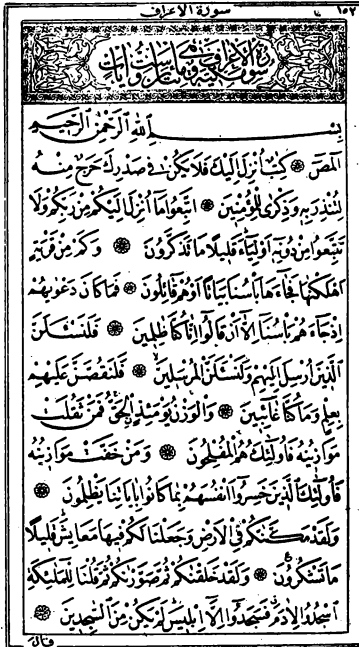 ١٥٢ سورة الاعراف
سورة الاعراف مكية
بِسْــــمِ اللّٰهِ الرَّحْمٰنِ الرَّحِيمِ
الٓمٓصٓ ۝ كِتَابٌ اُنْزِلَ اِلَيْكَ فَلَا يَكُنْ فِى صَدْرِكَ حَرَجٌ مِنْهُ
لِتُنْذِرَ بِهِ وَذِكْرٰى لِلْمُؤْمِنِينَ ۝ اِتَّبِعُوا مَٓا اُنْزِلَ اِلَيْكُمْ مِنْ رَبِّكُمْ وَلَا
تَتَّبِعُوا مِنْ دُونِهِٓ اَوْلِيَٓاءَ قَلِيلًا مَا تَذَكَّرُونَ ۝ وَكَمْ مِنْ قَرْيَةٍ
اَهْلَكْنَاهَا فَجَٓاءَهَا بَأْسُنَا بَيَاتًا اَوْ هُمْ قَٓائِلُونَ ۝ فَمَا كَانَ دَعْوٰيهُمْ
اِذْ جَٓاءَهُمْ بَأْسُنَٓا اِلَّٓا اَنْ قَالُٓوا اِنَّا كُنَّا ظَالِمِينَ ۝ فَلَنَسْـَٔلَنَّ
الَّذِينَ اُرْسِلَ اِلَيْهِمْ وَلَنَسْـَٔلَنَّ الْمُرْسَلِينَ ۝ فَلَنَقُصَّنَّ عَلَيْهِمْ
بِعِلْمٍ وَمَا كُنَّا غَٓائِبِينَ ۝ وَالْوَزْنُ يَوْمَئِذٍ الْحَقُّ فَمَنْ ثَقُلَتْ
مَوَازِينُهُ فَاُولٰٓئِكَ هُمُ الْمُفْلِحُونَ ۝ وَمَنْ خَفَّتْ مَوَازِينُهُ
فَاُولٰٓئِكَ الَّذِينَ خَسِرُٓوا اَنْفُسَهُمْ بِمَا كَانُوا بِاٰيَاتِنَا يَظْلِمُونَ ۝
وَلَقَدْ مَكَّنَّاكُمْ فِى الْاَرْضِ وَجَعَلْنَا لَكُمْ فِيهَا مَعَايِشَ قَلِيلًا
مَا تَشْكُرُونَ ۝ وَلَقَدْ خَلَقْنَاكُمْ ثُمَّ صَوَّرْنَاكُمْ ثُمَّ قُلْنَا لِلْمَلٰٓئِكَةِ
اسْجُدُوا لِاٰدَمَ فَسَجَدُٓوا اِلَّٓا اِبْلِيسَ لَمْ يَكُنْ مِنَ السَّاجِدِينَ ۝
قال